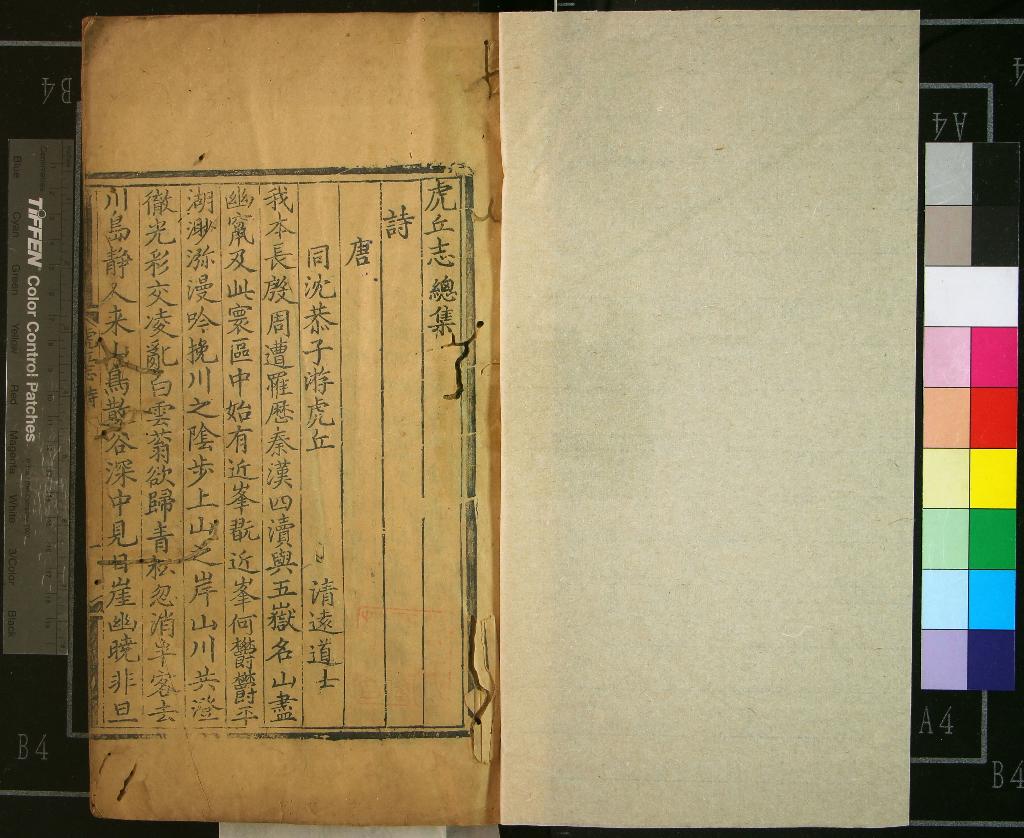 虎丘志總集
詩
唐
同沈恭子游虎丘 清遠道士
我本長殷周遭罹歷秦漢四瀆與五嶽名山盡
幽竄及此寰區中始有近峯翫近峯何鬱鬱平
湖渺瀰漫吟挽川之陰步上山之岸山川共澄
徹光彩交凌亂白雲蓊欲歸青松忽消半客去
川島靜人来山鳥散谷深中見日崖幽曉非旦
B4
B4
A4
A4
A4
B4
TIFFEN Color Control Patches
Blue Cyan Green Yellow Red Magenta White 3/Color Black